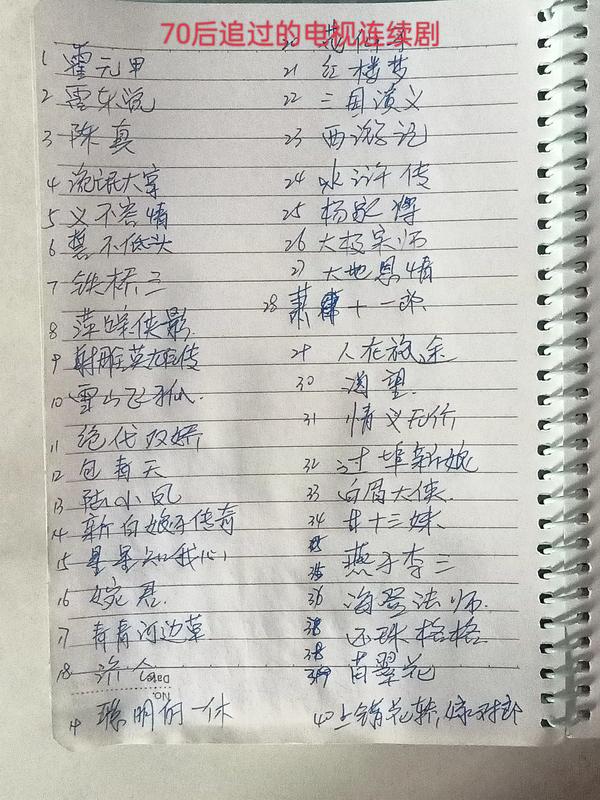 70后追过的电视连续剧
1 霍元甲
2 霍东阁
3 陈真
4 流氓大亨
5 义不容情
6 楚不低头
7 铁桥三
8 萍踪侠影
9 射雕英雄传
10 雪山飞狐.
11 绝代双娇
12 包青天
13 陆小凤
14 新白娘子传奇
15 星星知我心
16 婉君.
17 青青河边草
18
Date
No.
19 聪明的一休
20
21 红楼梦
22 三国演义
23 西游记
24 水浒传
25 杨家将
26 太极宗师
27 大地恩情
28 萧十一郎
29 人在旅途
30 渴望.
31 情义无价
32 埠新娘
33 白眉大侠.
34 十三妹.
35 燕子李三
36 海灯法师.
38 还珠格格
39 苗翠花
40 上错花轿,嫁对郎